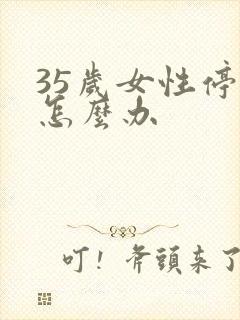 35歲女性停
怎麼办
叮！斧頭来了